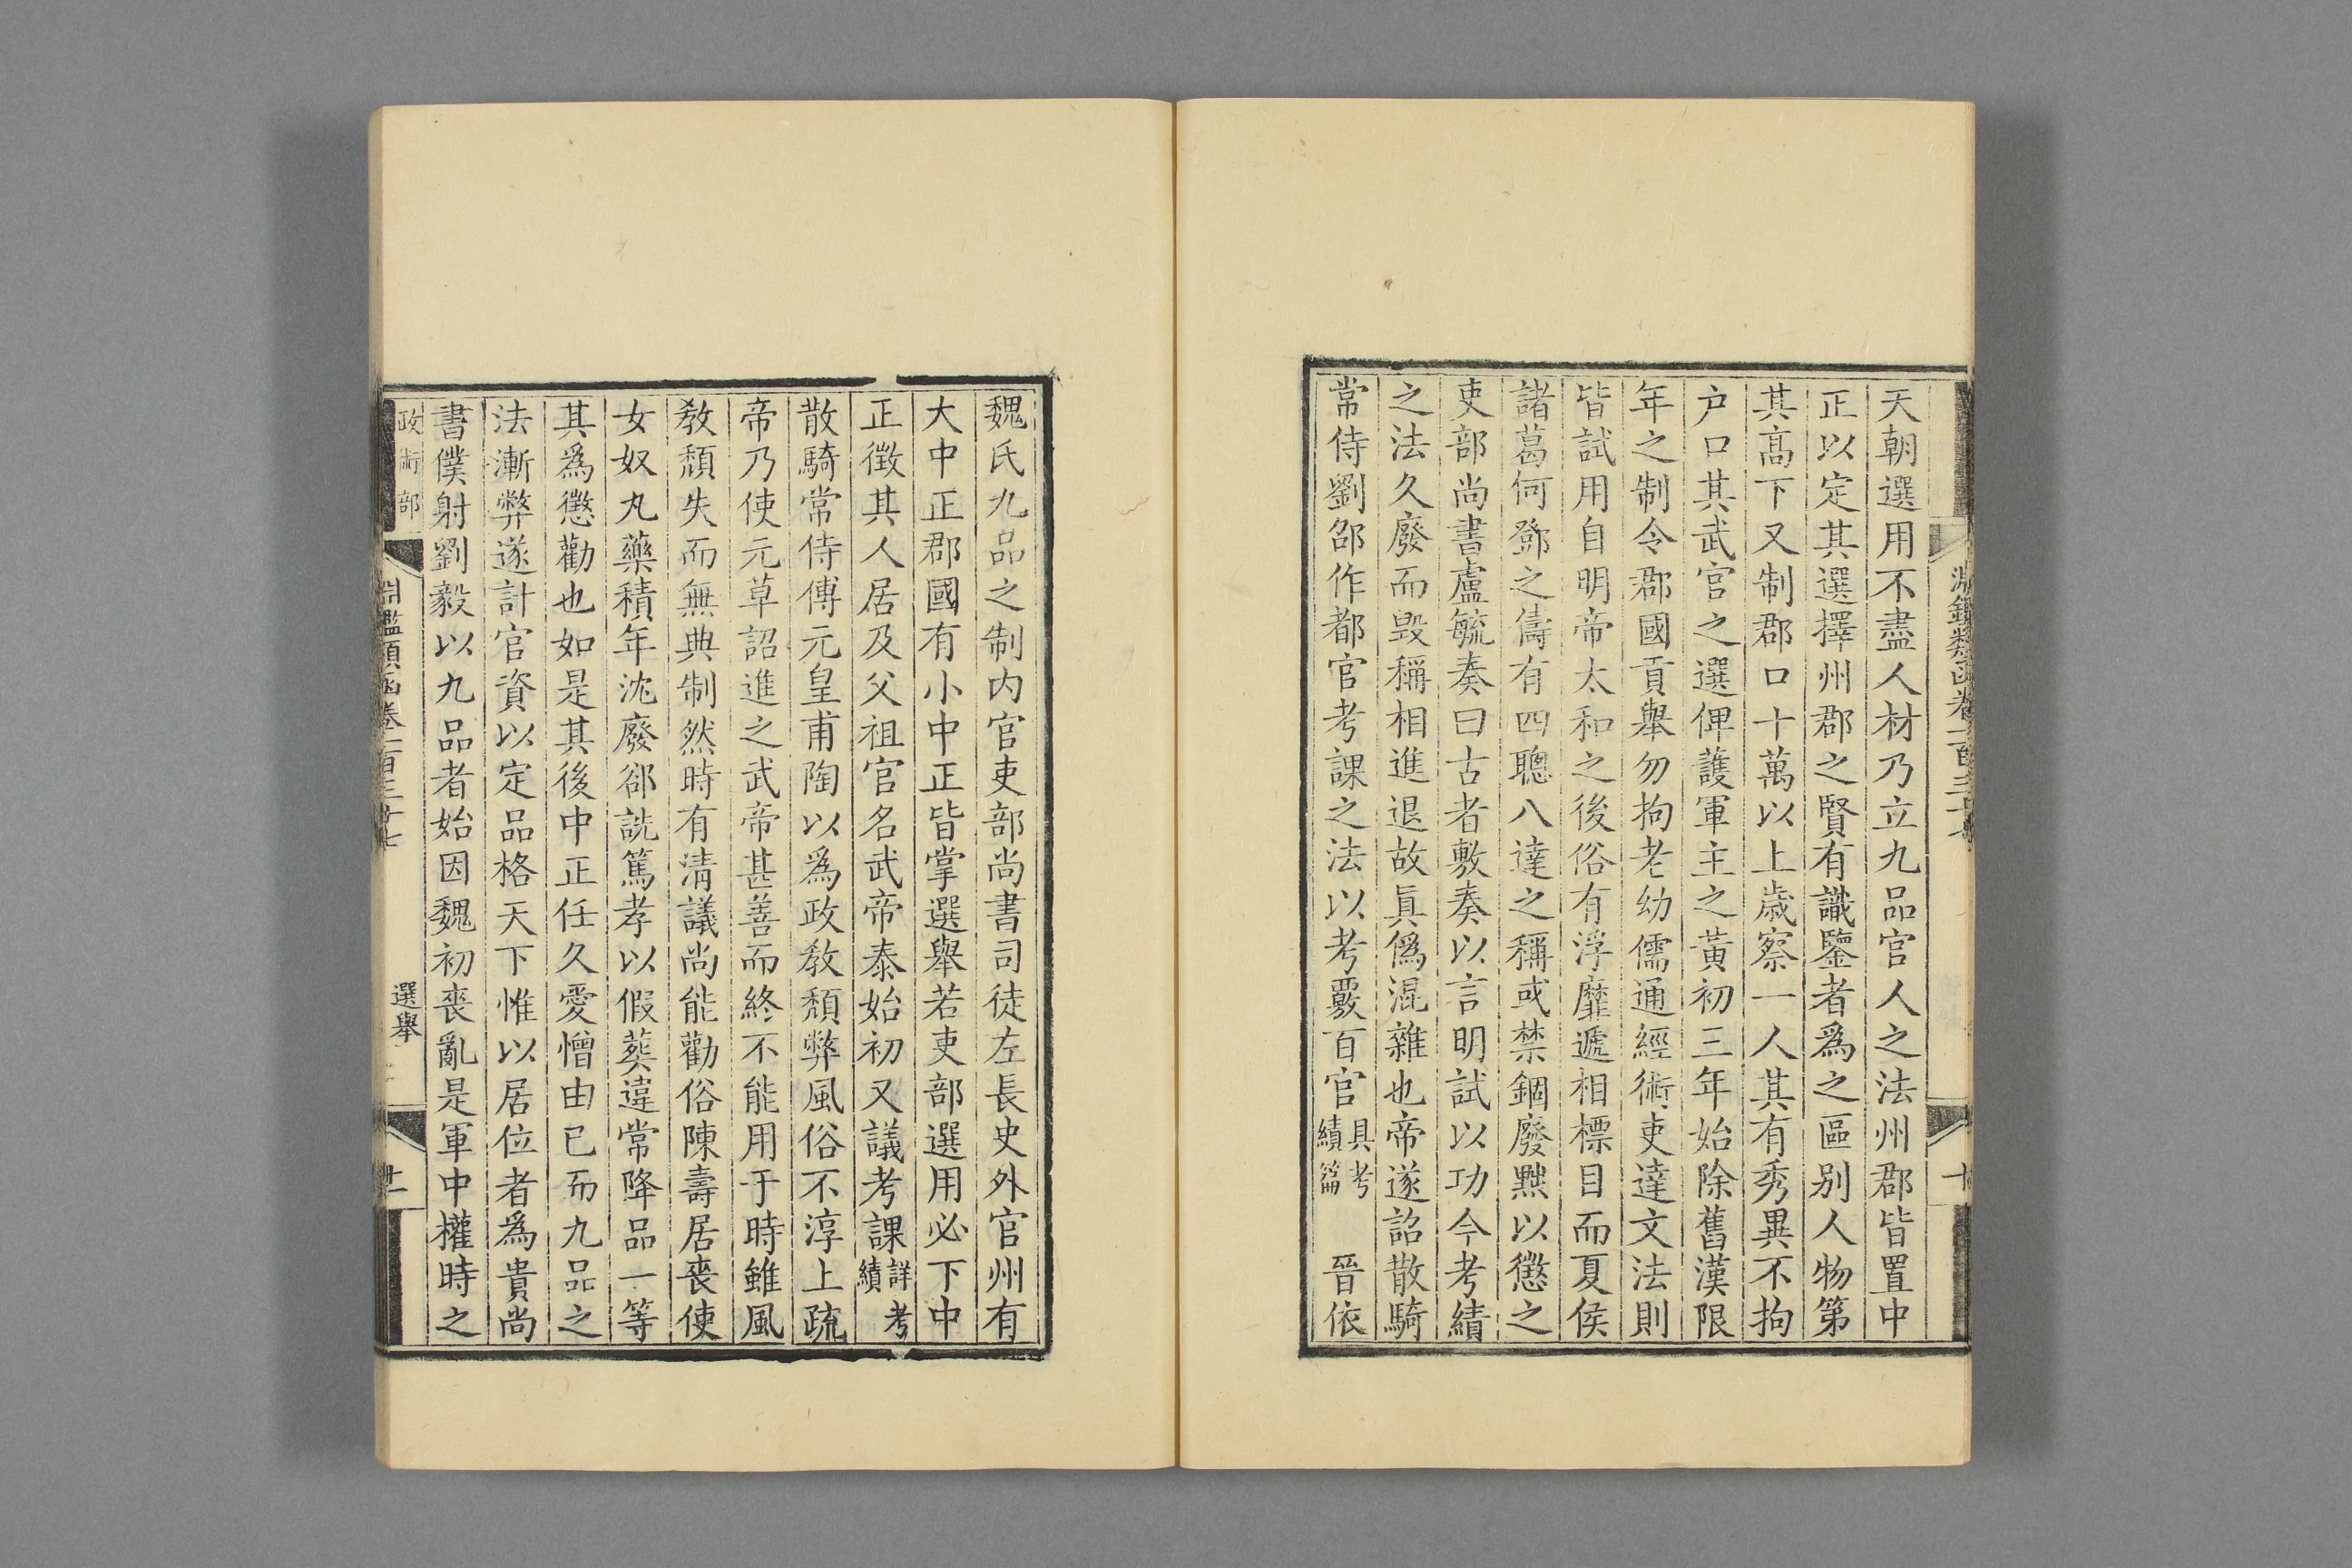 天朝選用不盡人材乃立九品官人之法州郡皆置中
正以定其選擇州郡之賢有識鑒者爲之區别人物第
其髙下又制郡口十萬以上歳察一人其有秀異不拘
户口其武官之選俾護軍主之黃初三年始除舊漢限
年之制令郡國貢舉勿拘老幼儒通經術吏達文法則
皆試用自明帝太和之後俗有浮靡遞相標目而夏侯
諸葛何鄧之儔有四聰八達之稱或禁錮廢黜以懲之
吏部尚書盧毓奏曰古者敷奏以言明試以功今考績
之法久廢而毁稱相進退故眞僞混雜也帝遂詔散騎
常侍劉邵作都官考課之法以考覈百官具考績篇　晉依
魏氏九品之制内官吏部尚書司徒左長史外官州有
大中正郡國有小中正皆掌選舉若吏部選用必下中
正徵其人居及父祖官名武帝泰始初又議考課詳考績
散騎常侍傅元皇甫陶以爲政敎頽弊風俗不淳上疏
帝乃使元草詔進之武帝甚善而終不能用于時雖風
敎頽失而無典制然時有淸議尚能勸俗陳壽居喪使
女奴丸藥積年沈廢郤詵篤孝以假葬違常降品一等
其爲懲勸也如是其後中正任久愛憎由已而九品之
法漸弊遂計官資以定品格天下惟以居位者爲貴尚
書僕射劉毅以九品者始因魏初喪亂是軍中權時之
政術部
淵鑑類函卷一百三十七
選舉
十一